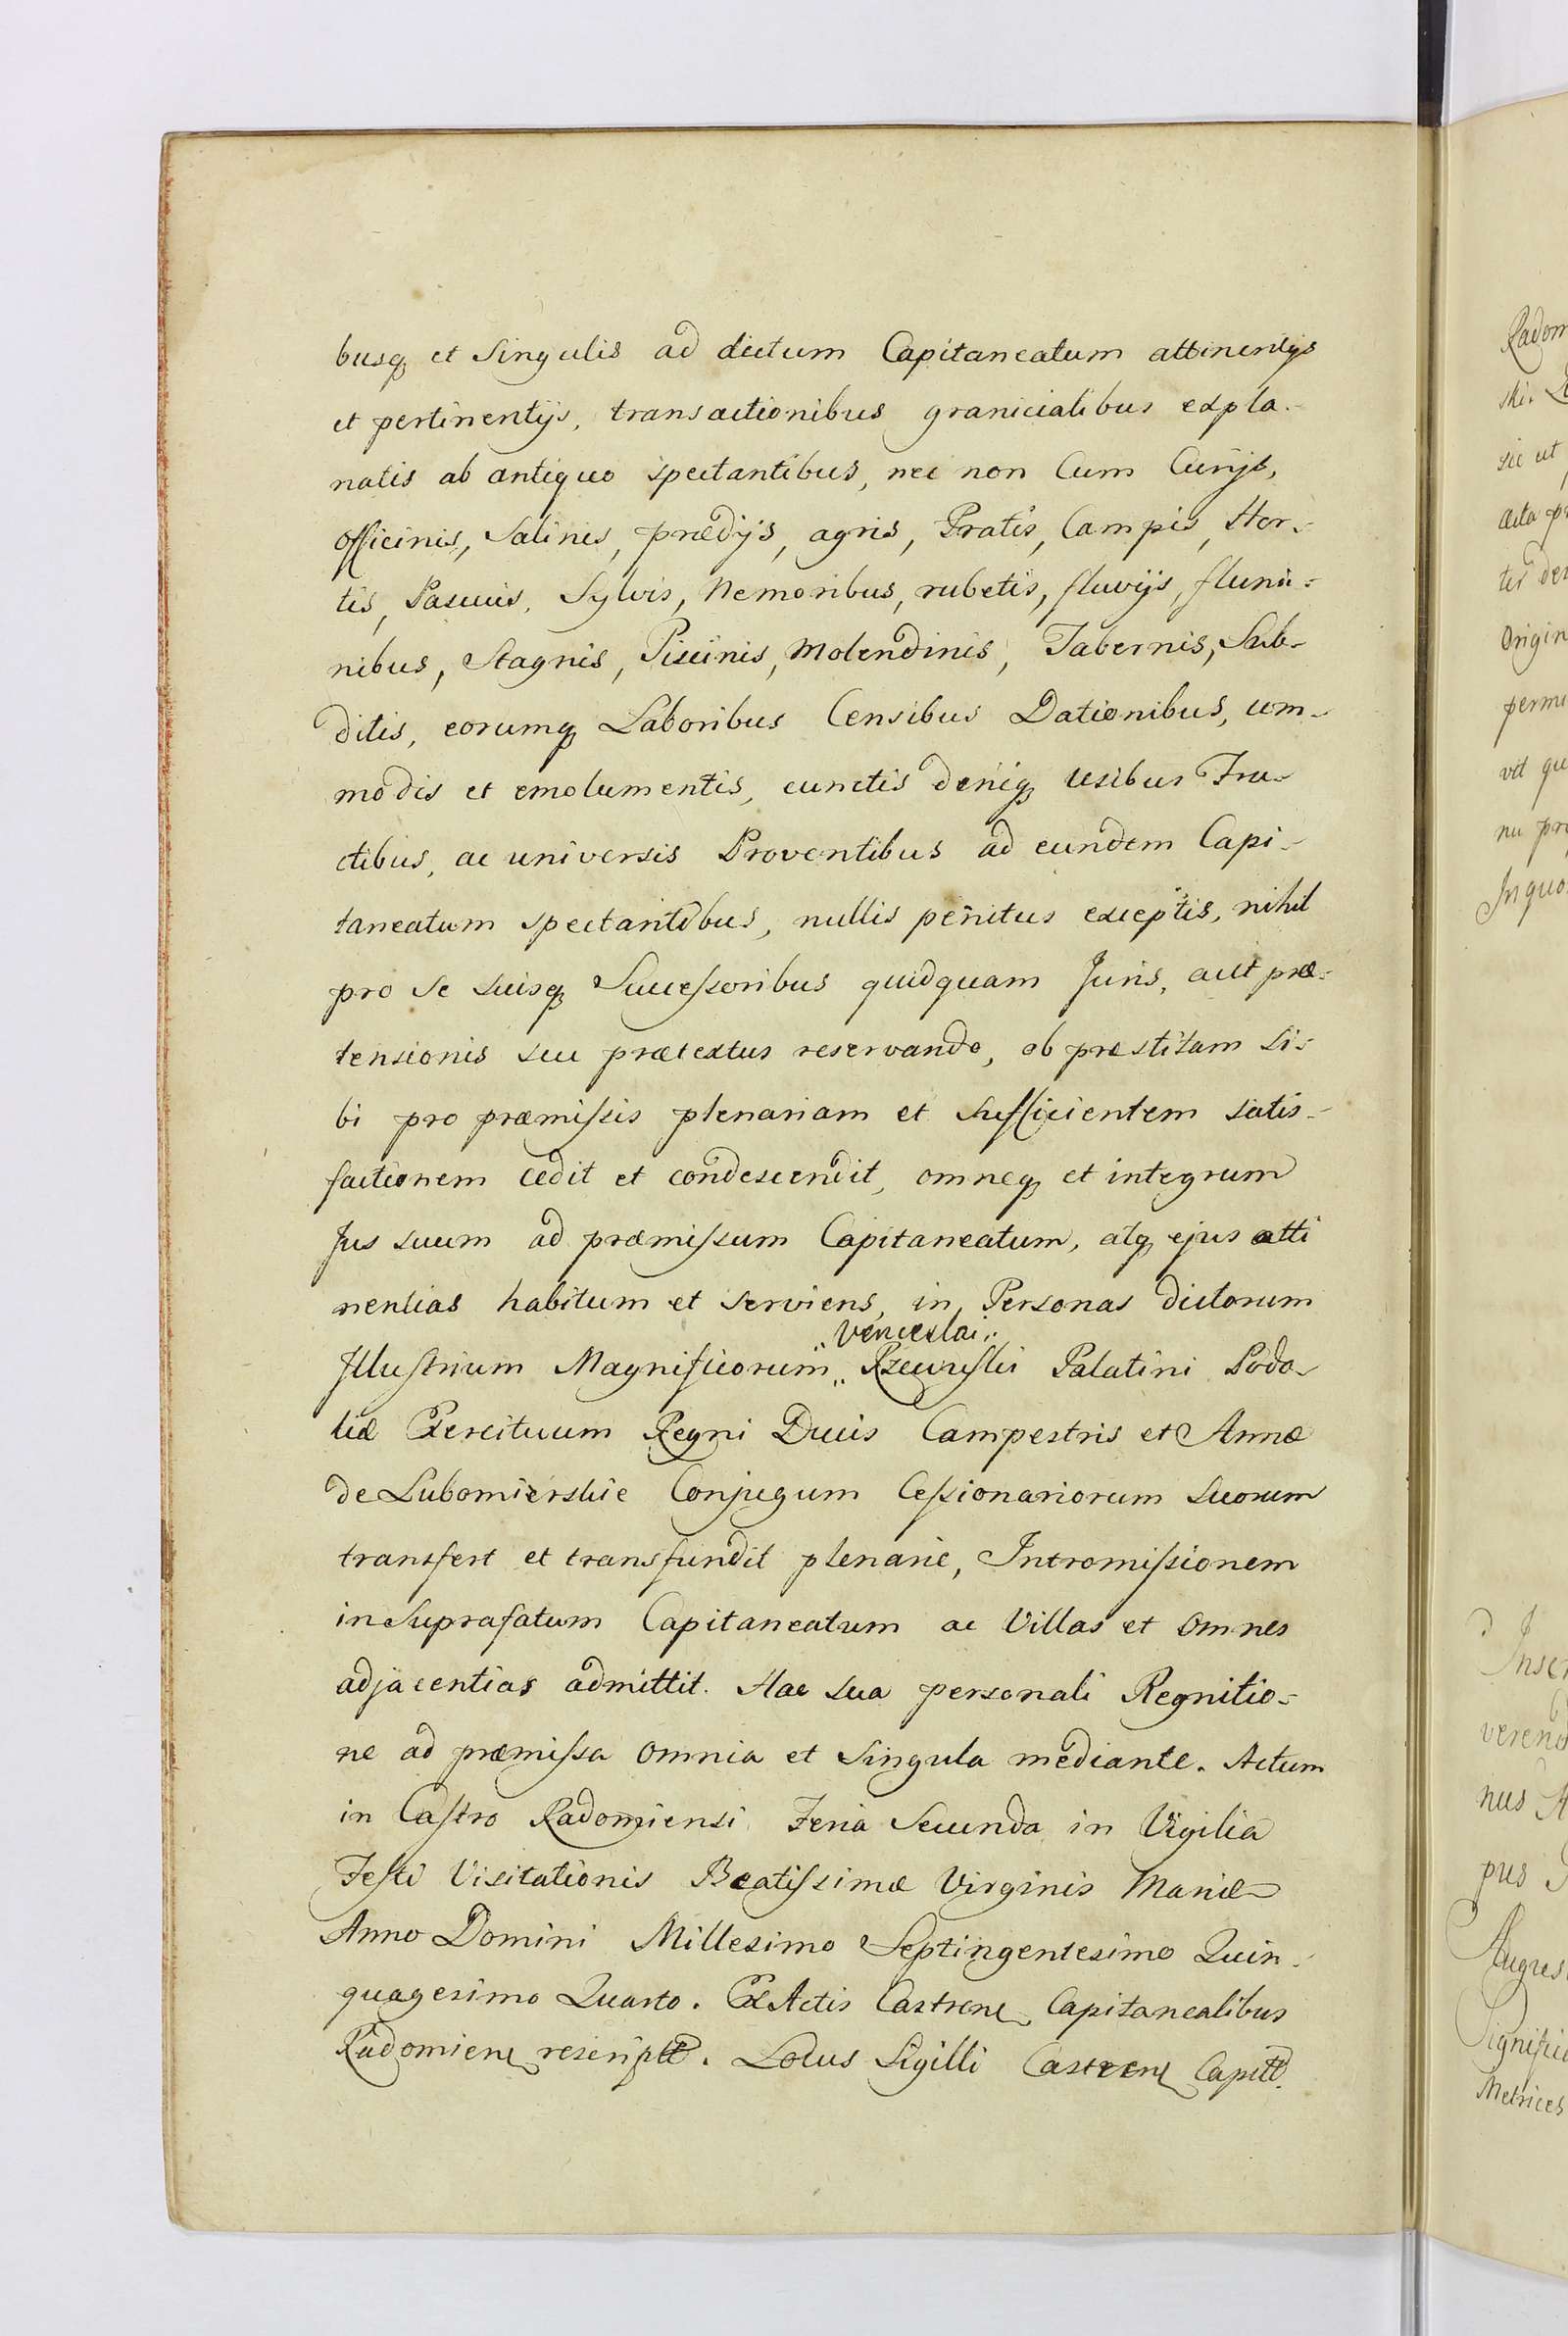 busq et Singulis ad dictum Capitaneatum attinentijs
et pertinentijs, transactionibus granicialibus expla-
natis ab antiquo spectantibus, nec non Cum Curijs,
officinis, Salinis, prædijs, agris, Pratis, Campis, Hor-
tis, Pascuis, Sylvis, Nemoribus, rubetis, fluvijs, flumi-
nibus, Stagnis, Piscinis, Molendinis, Tabernis, Sub-
ditis, eorumq Laboribus Censibus Dationibus, com-
modis et emolumentis, cunctis deniq usibus Fru-
ctibus, ac universis Proventibus ad eundem Capi-
taneatum spectantibus, nullis penitus exceptis, nihil
pro se suisq Succeſsoribus quidquam Juris, aut præ-
tensionis seu prætextus reservando, ob præstitam si-
bi pro præmiſsis plenariam et sufficientem satis-
factionem cedit et condescendit, omneq et integrum
Jus suum ad præmiſsum Capitaneatum, atq ejus atti
nentias habitum et serviens, in Personas dictorum
Venceslai
Jlluſtrium Magnificorum Rzewuſki Palatini Podo-
liæ Exercituum Regni Ducis Campestris et Annæ
de Lubomierskie Conjugum Ceſsionariorum Suorum
transfert et transfundit plenarie, Intromiſsionem
in Suprafatum Capitaneatum ac Villas et Omnes
adjacentias admittit. Hac sua personali Regnitio-
ne ad præmiſsa Omnia et Singula mediante. Actum
in Caſtro Radomiensi Feria Secunda in Vigilia
Feſti Visitationis Beatiſsimæ Virginis Mariæ
Anno Domini Millesimo Septingentesimo Quin-
quagesimo Quarto. Ex Actis Castrens Capitanealibus
Radomiens rescript. Locus Sigilli Castrens Capitt.
Radom
ski.
sic ut
acta
ter
Origin
permi
vit
nu
Inquo
Inser
verend
nus
pus
August
Signific
Metrices